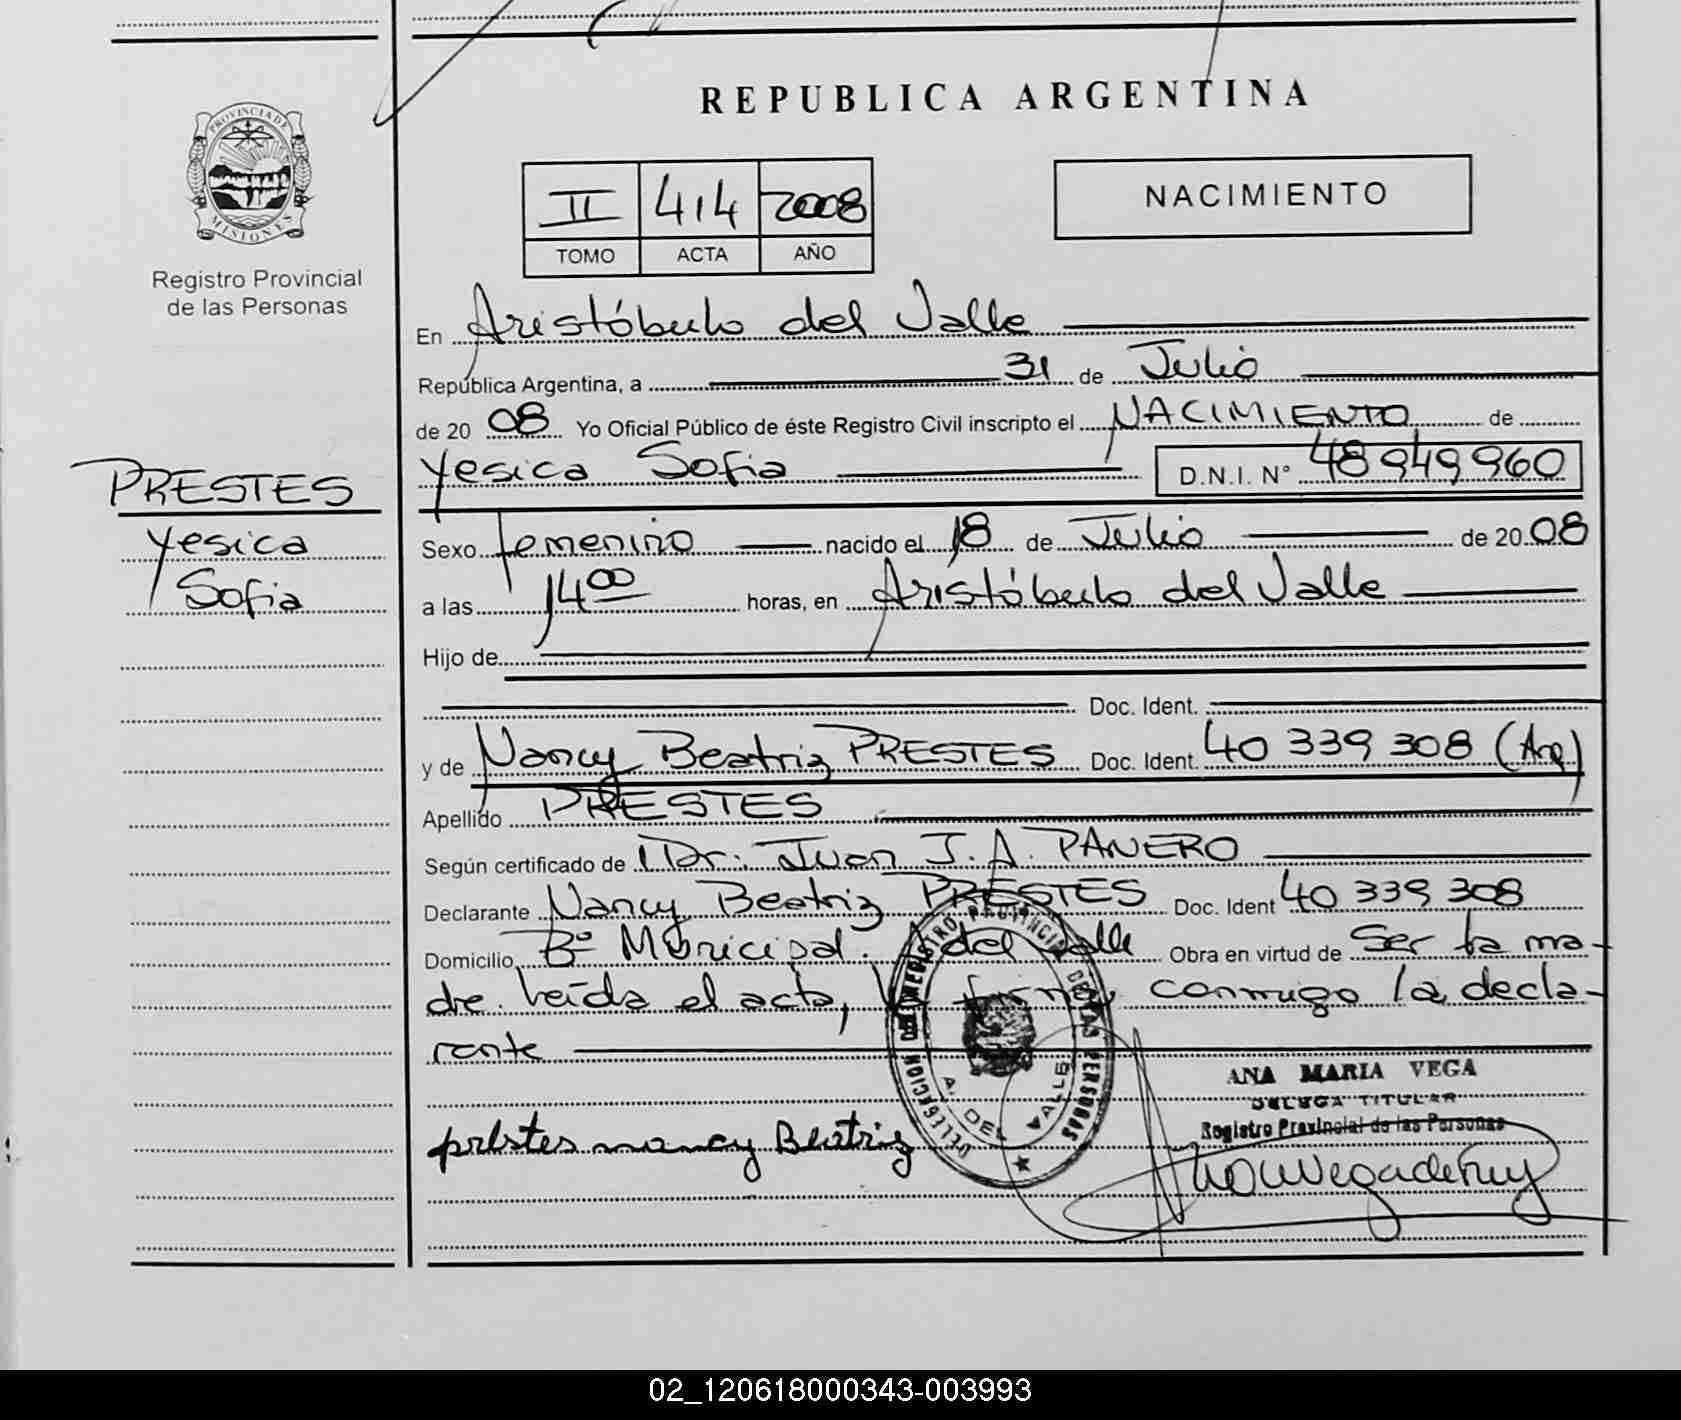 REPUBLICA ARGENTINA
PROVINCIA DE MISIONES
Registro Provincial
de las Personas
II 414 2008
TOMO ACTA AÑO
NACIMIENTO
En Aristóbulo del Valle
República Argentina, a 31 de Julio
de 20 08 Yo Oficial Público de éste Registro Civil inscripto el NACIMIENTO de
Yesica Sofia D.N.I. N° 48 949 960
PRESTES
Yesica
Sofia
Sexo femenino nacido el 18 de Julio de 20 08
a las 14 00 horas, en Aristóbulo del Valle
Hijo de
Doc. Ident.
y de Nancy Beatriz PRESTES Doc. Ident. 40 339 308 (Arg)
Apellido PRESTES
Según certificado de Dr. Juan J. A. PANERO
Declarante Nancy Beatriz PRESTES Doc. Ident 40 339 308
Domicilio Bº Municipal. A del Valle Obra en virtud de Ser la ma-
dre. Leída el acta, la firma conmigo la decla-
rante
DELEGACION REGISTRO PROVINCIAL DE LAS PERSONAS
A. DEL VALLE
ANA MARIA VEGA
DELEGA TITULAR
Registro Provincial de las Personas
prestes nancy Beatriz
02_120618000343-003993